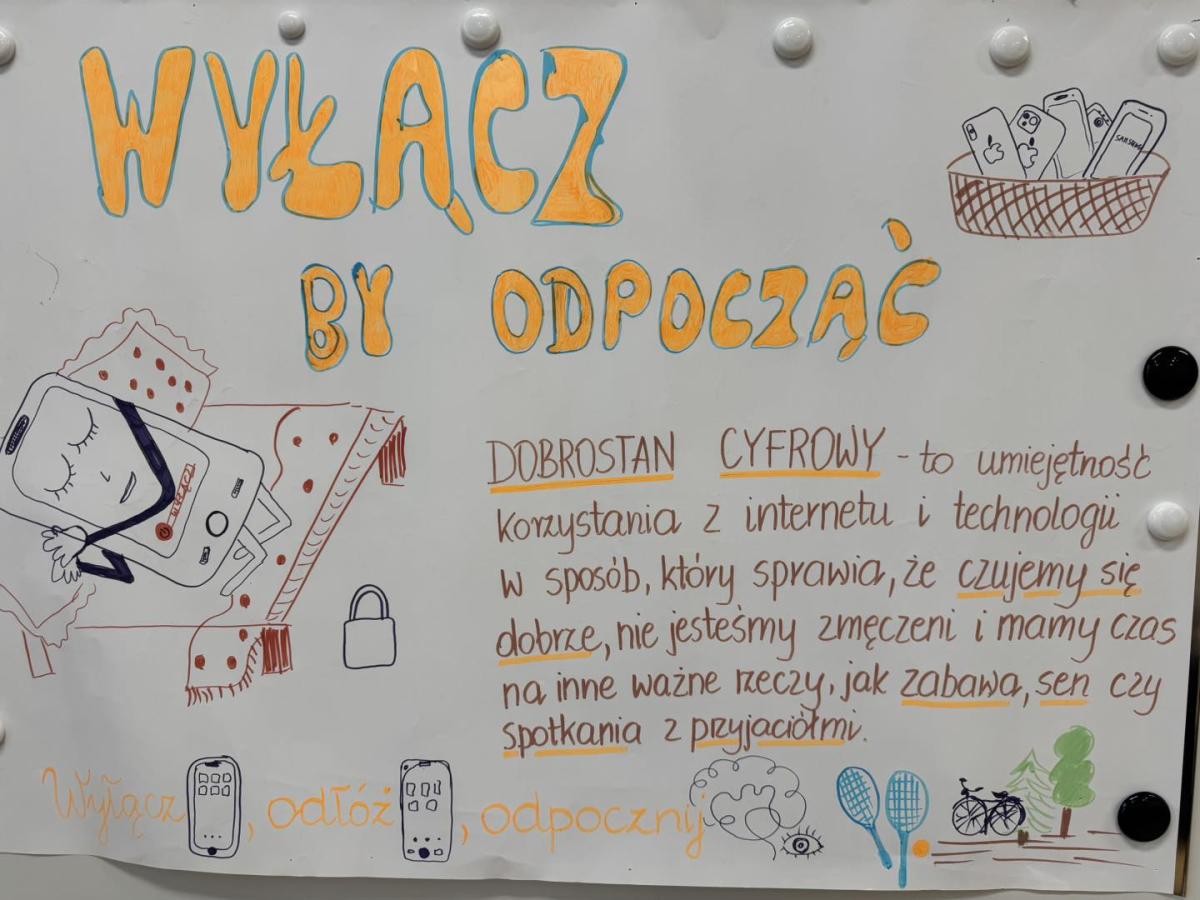 WYŁĄCZ
BY ODPOCZĄĆ
SAMSUNG
WYŁĄCZ
DOBROSTAN CYFROWY - to umiejętność
korzystania z internetu i technologii
w sposób, który sprawia, że czujemy się
dobrze, nie jesteśmy zmęczeni i mamy czas
na inne ważne rzeczy, jak zabawa, sen czy
spotkania z przyjaciółmi.
Wyłącz, odłóż, odpocznij